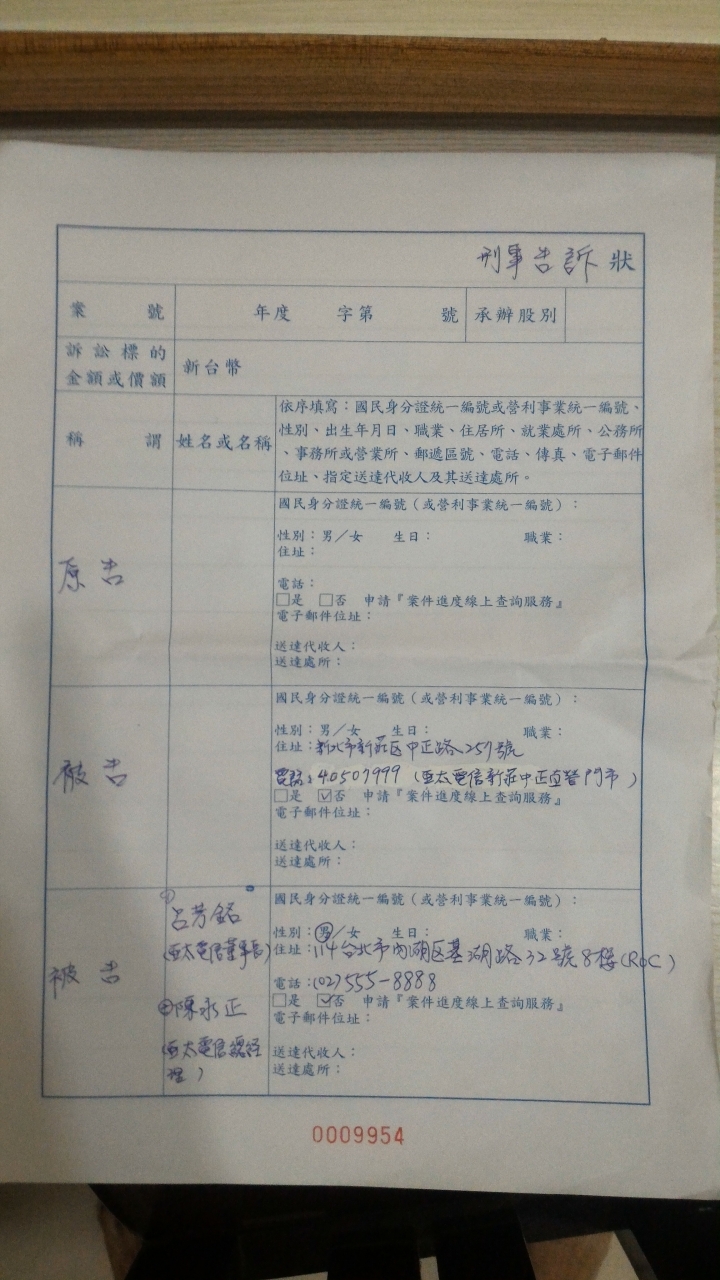 刑事告訴狀
案號 年度 字第 號 承辦股別
訴訟標的
金額或價額 新台幣
稱謂 姓名或名稱 依序填寫：國民身分證統一編號或營利事業統一編號、
性別、出生年月日、職業、住居所、就業處所、公務所
、事務所或營業所、郵遞區號、電話、傳真、電子郵件
位址、指定送達代收人及其送達處所。
原告
國民身分證統一編號（或營利事業統一編號）：
性別：男／女 生日： 職業：
住址：
電話：
□是 □否 申請『案件進度線上查詢服務』
電子郵件位址：
送達代收人：
送達處所：
被告
國民身分證統一編號（或營利事業統一編號）：
性別：男／女 生日： 職業：
住址：新北市新莊区中正路257號
電話：40507999（亞太電信新莊中正直營門市）
□是 ☑否 申請『案件進度線上查詢服務』
電子郵件位址：
送達代收人：
送達處所：
被告
① 呂芳銘
(亞太電信董事長)
②陳永正
(亞太電信總經
理)
國民身分證統一編號（或營利事業統一編號）：
性別：男／女 生日： 職業：
住址：114台北市內湖区基湖路32號8樓(ROC)
電話：(02)555-8888
□是 ☑否 申請『案件進度線上查詢服務』
電子郵件位址：
送達代收人：
送達處所：
0009954